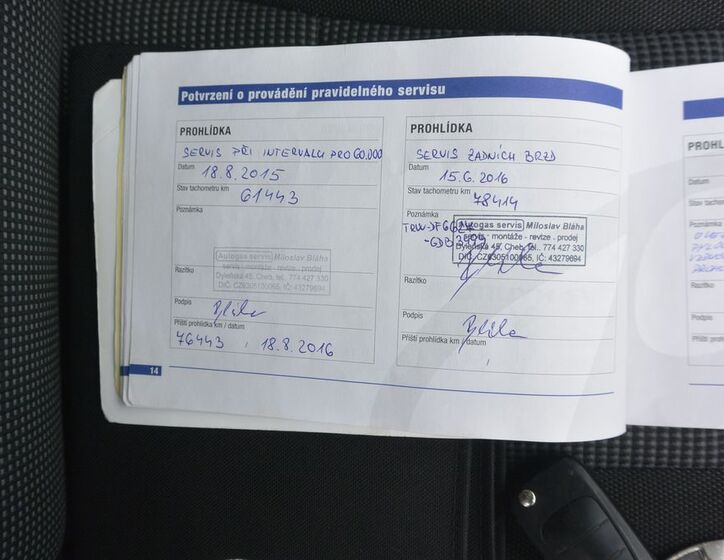 Potvrzení o provádění pravidelného servisu
PROHLÍDKA
SERVIS PŘI INTERVALU PRO 60.000
Datum
18.8.2015
Stav tachometru km
61443
Poznámka
Autogas servis Miloslav Bláha
servis - montáže - revize - prodej
Dyleňská 45, Cheb, tel. 774 427 330
DIČ: CZ6305100065, IČ: 43279694
Razítko
Podpis
Příští prohlídka km / datum
76443 / 18.8.2016
14
PROHLÍDKA
SERVIS ZADNÍCH BRZD
Datum
15.6.2016
Stav tachometru km
78414
Poznámka
Autogas servis Miloslav Bláha
servis - montáže - revize - prodej
Dyleňská 45, Cheb, tel. 774 427 330
DIČ: CZ6305100065, IČ: 43279694
Razítko
Podpis
Příští prohlídka km / datum
/
PROHL
Datum
Stav tachom
Poznámka
Razítko
Podpis
Příští pro